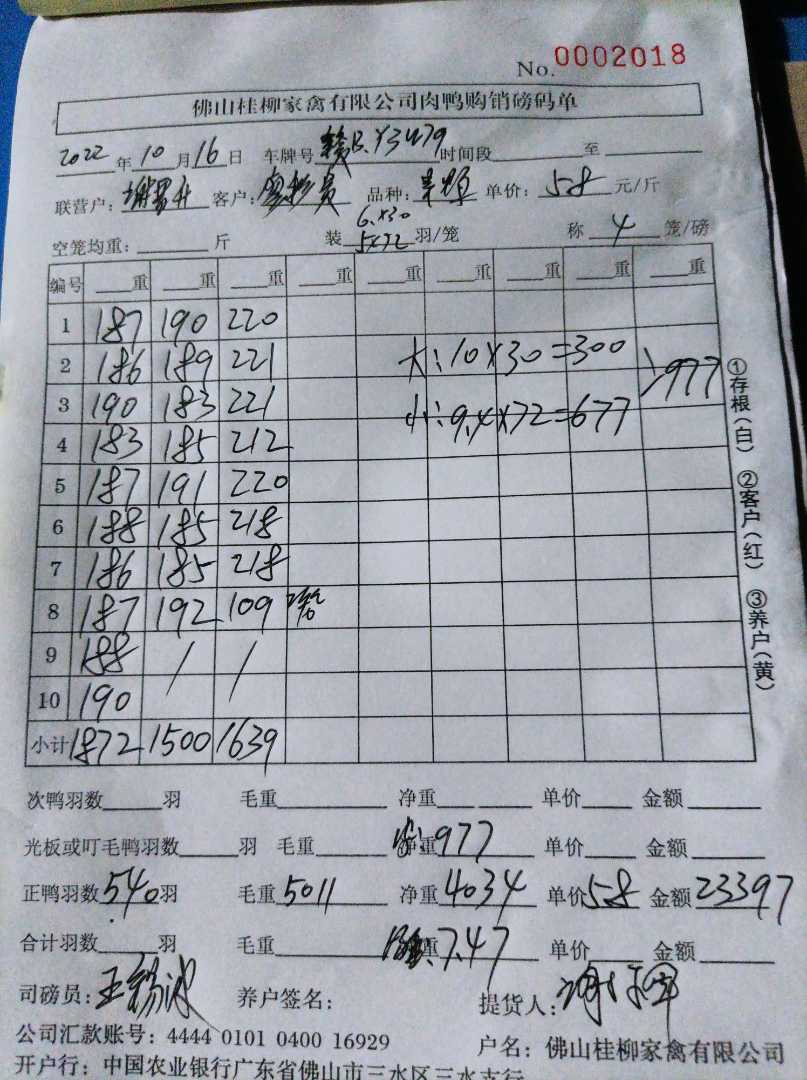 No. 0002018
佛山桂柳家禽有限公司肉鸭购销磅码单
2022 年 10 月 16 日 车牌号 赣B.Y3479 时间段 至
联营户: 客户: 品种: 单价: 5.8 元/斤
6.×30
空笼均重: 斤 装 5×72 羽/笼 称 4 笼/磅
编号 重 重 重 重 重 重 重 重 重
1 187 190 220
2 186 189 221 大: 10×30=300
3 190 183 221 小: 9.4×72=677 977
4 183 185 212
5 187 191 220
6 188 185 218
7 186 185 218
8 187 192 109 2笼
9 188 / /
10 190
小计 1872 1500 1639
①存根(白) ②客户(红) ③养户(黄)
次鸭羽数 羽 毛重 净重 单价 金额
光板或叮毛鸭羽数 羽 毛重 净重 977 单价 金额
正鸭羽数 540 羽 毛重 5011 净重 4034 单价 5.8 金额 23397
合计羽数 羽 毛重 重 7.47 单价 金额
司磅员: 王锡波 养户签名: 提货人:
公司汇款账号: 4444 0101 0400 16929 户名: 佛山桂柳家禽有限公司
开户行: 中国农业银行广东省佛山市三水区三水支行